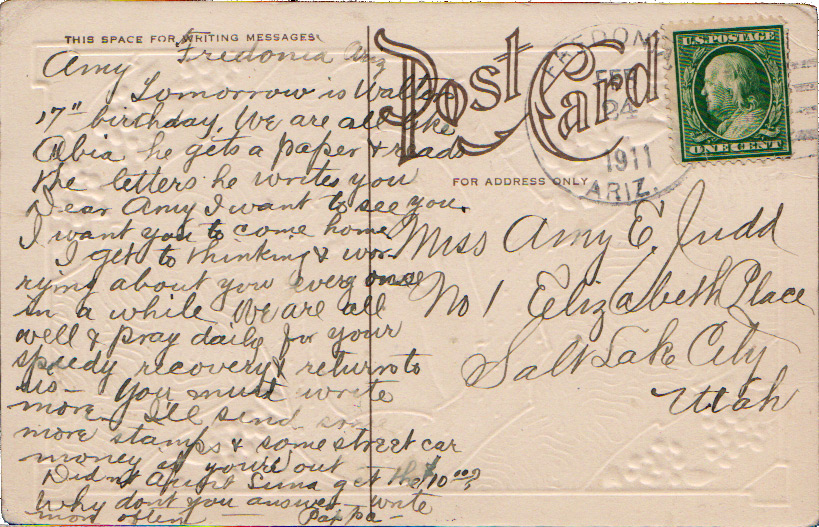 THIS SPACE FOR WRITING MESSAGES
Fredonia Ariz
Amy
Tomorrow is Walter
17" birthday. We are all like
he gets a paper & reads
the letters he writes you
Dear Amy I want to see you.
I want you to come home
I get to thinking & wor-
rying about you every once
in a while. We are all
well & pray daily for your
speedy recovery & return to
us - You must write
more I'll send some
more stamps & some street car
money if you're out
Didn't Aunt get the $10.00?
Why don't you answer write
more often Pappa -
Post Card
FOR ADDRESS ONLY
FREDONIA
FEB
24
1911
ARIZ.
U.S. POSTAGE
ONE CENT
Miss Amy E. Judd
No 1 Elizabeth Place
Salt Lake City
Utah